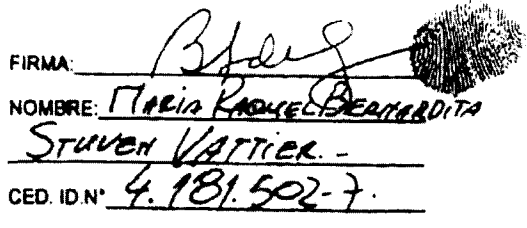 FIRMA:
NOMBRE: MARIA RAQUEL BERNARDITA
STUVEN VATTIER.-
CED. ID.N° 4.181.502-7.